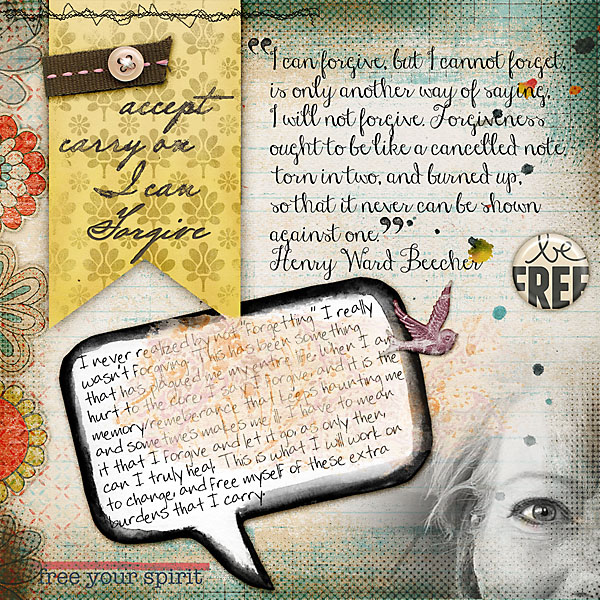 accept
carry on
I can
Forgive
“I can forgive, but I cannot forget,
is only another way of saying,
I will not forgive. Forgiveness
ought to be like a cancelled note,
torn in two, and burned up,
so that it never can be shown
against one.”
Henry Ward Beecher
be
FREE
I never realized by not "forgetting" I really
wasn't forgiving. This has been something
that has plagued me my entire life. When I am
hurt to the core, I say I forgive and it is the
memory/rememberance that keeps haunting me
and sometimes makes me ill. I have to mean
it that I forgive and let it go, as only then,
can I truly heal. This is what I will work on
to change, and free myself of these extra
burdens that I carry.
free your spirit